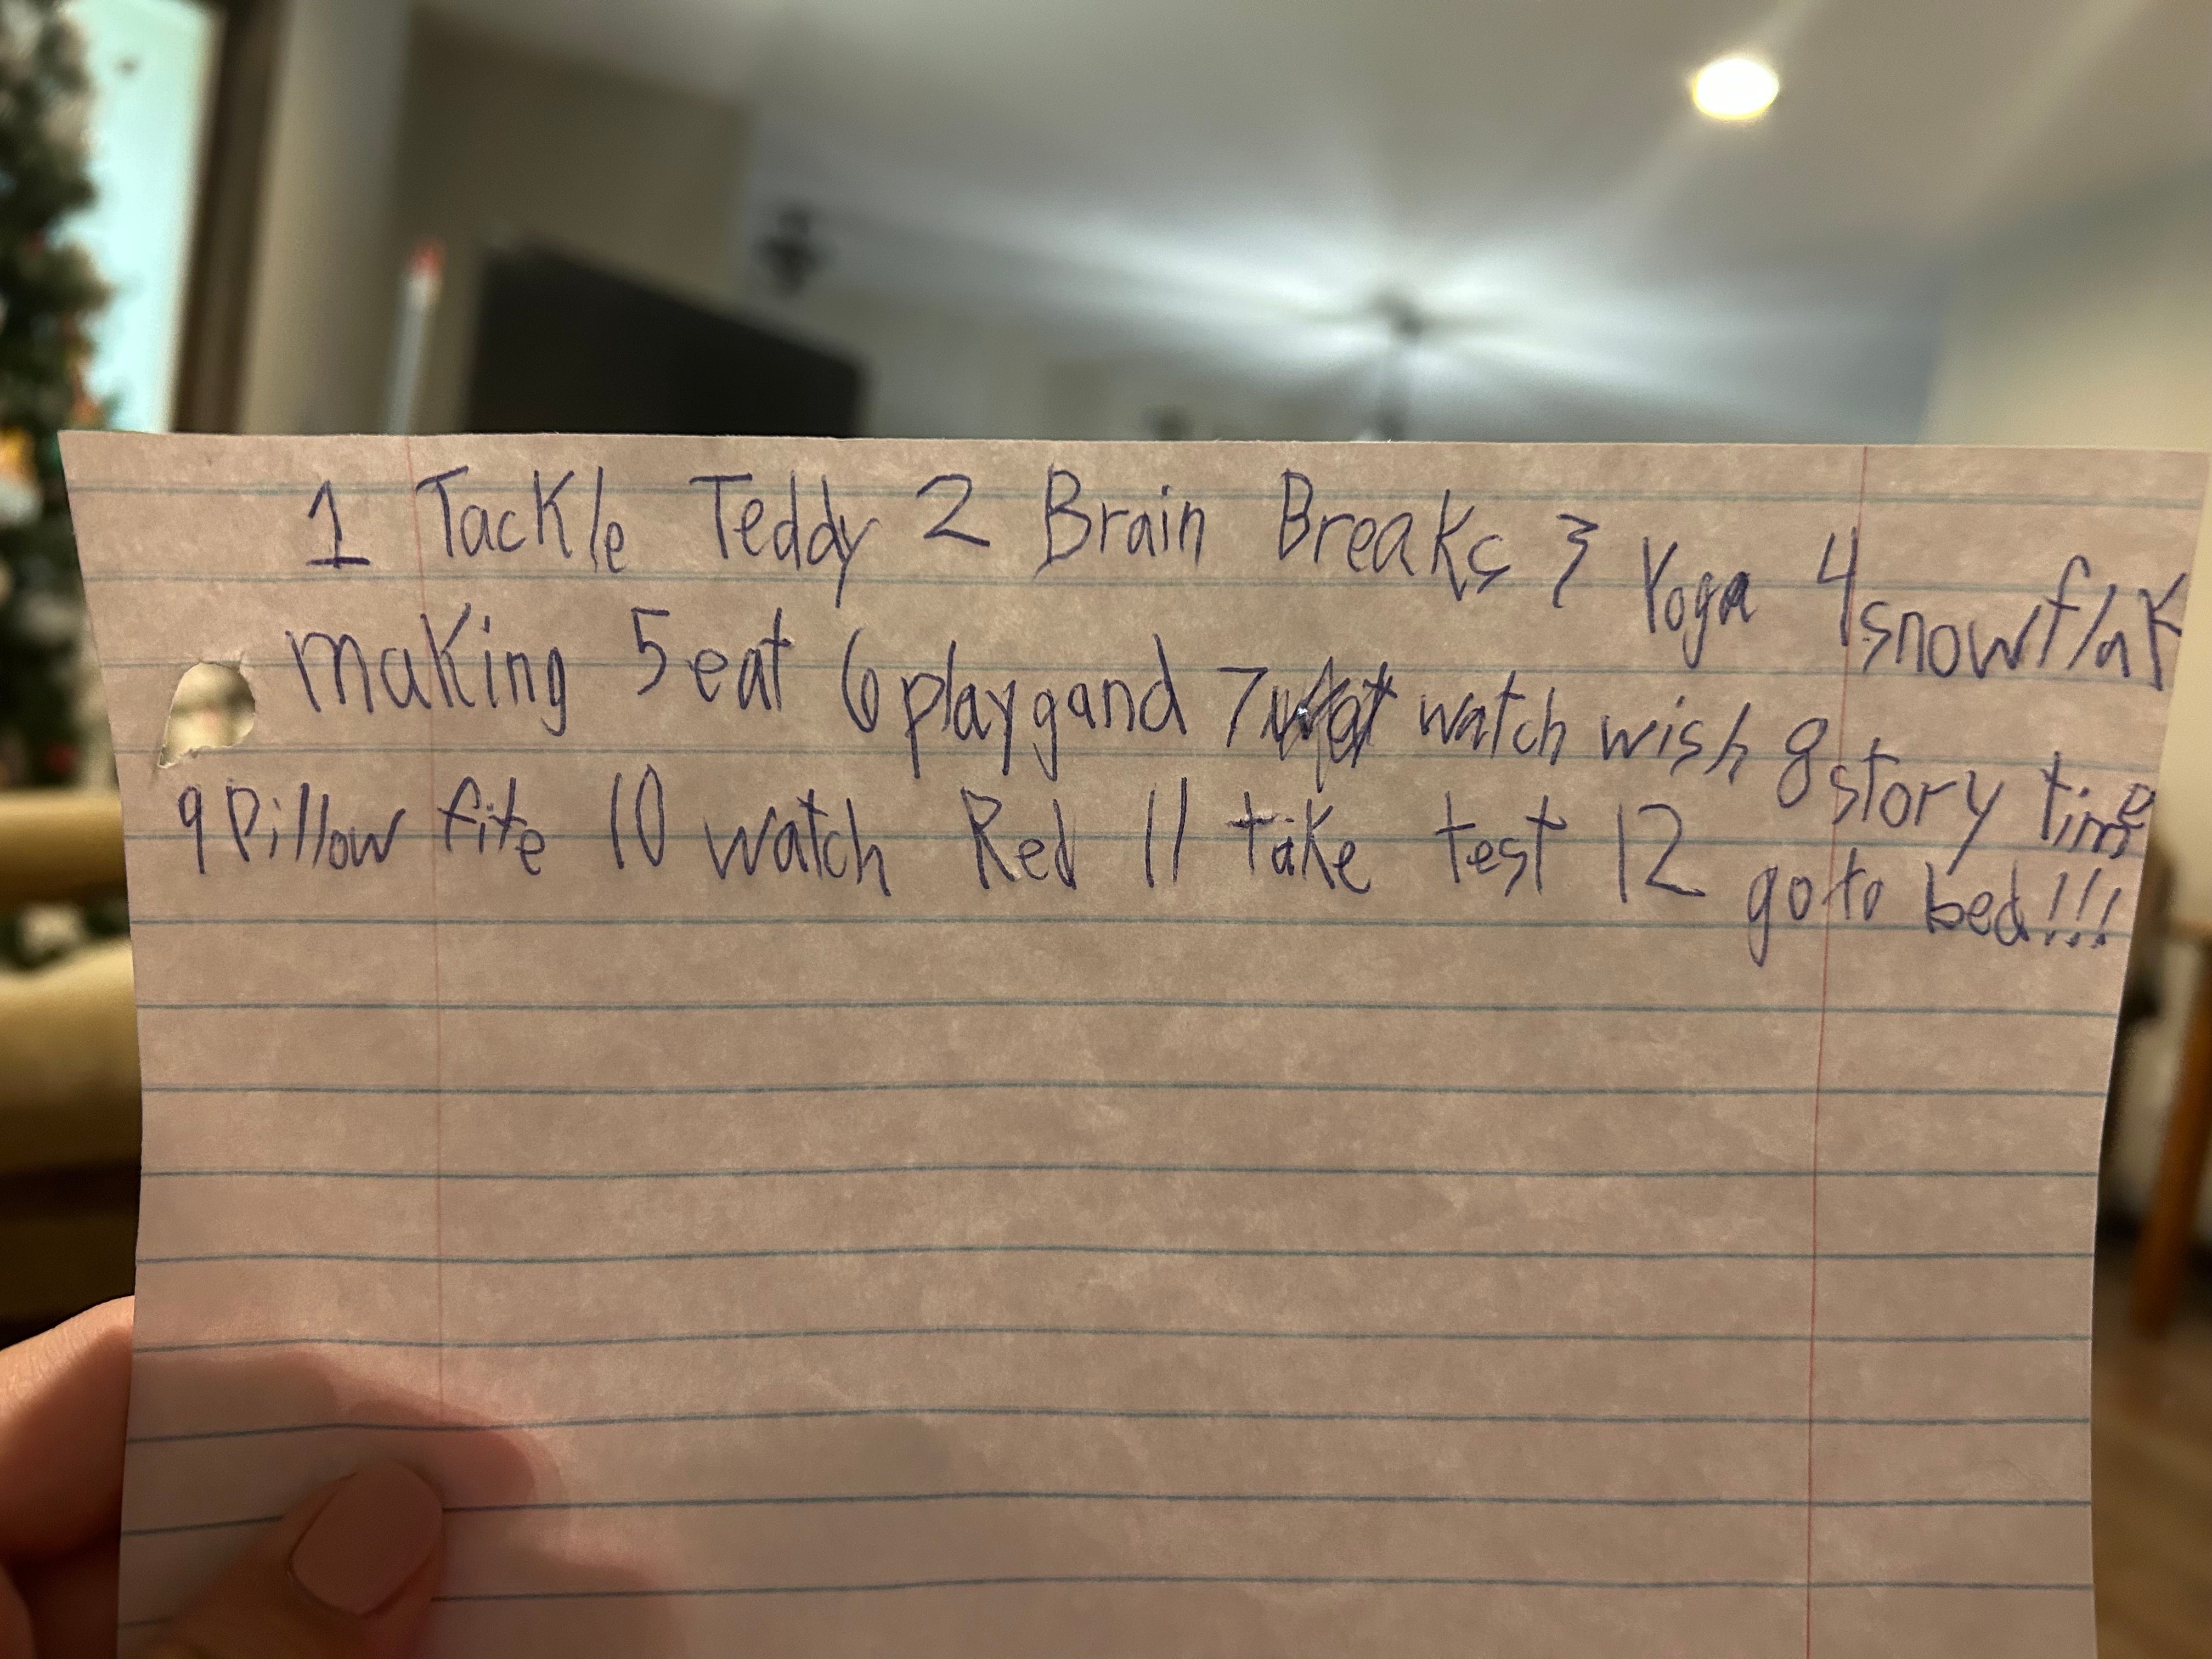 1 Tackle Teddy 2 Brain Breaks 3 Yoga 4 snowflak
making 5 eat 6 play gand 7 watch wish 8 story time
9 Pillow fite 10 watch Red 11 take test 12 go to bed!!!